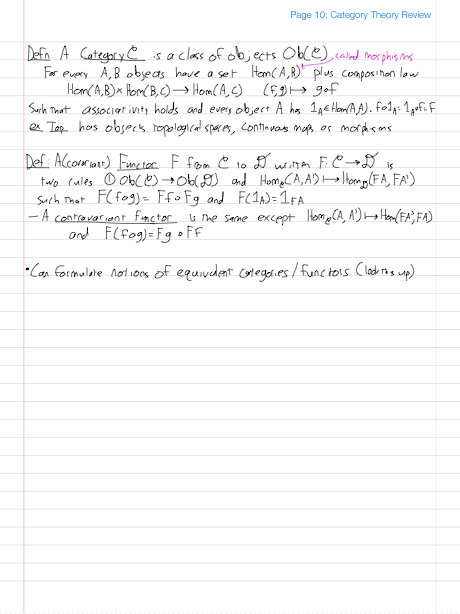 Page 10: Category Theory Review
Defn: A Category C is a class of objects Ob(C) called morphisms
For every A, B objects have a set Hom(A,B) plus composition law
Hom(A,B) × Hom(B,C) → Hom(A,C) (f,g) ↦ g∘f
Such that associativity holds and every object A has 1_A ∈ Hom(A,A). f∘1_A = 1_A∘f = f
ex Top has objects topological spaces, continuous maps as morphisms
Def: A (covariant) Functor F from C to D written F: C → D is
two rules ① Ob(C) → Ob(D) and Hom_C(A,A') ↦ Hom_D(FA, FA')
Such that F(f∘g) = Ff∘Fg and F(1_A) = 1_FA
– A contravariant functor is the same except Hom_C(A,A') ↦ Hom(FA',FA)
and F(f∘g) = Fg∘Ff
• Can formulate notions of equivalent categories/functors (look this up)